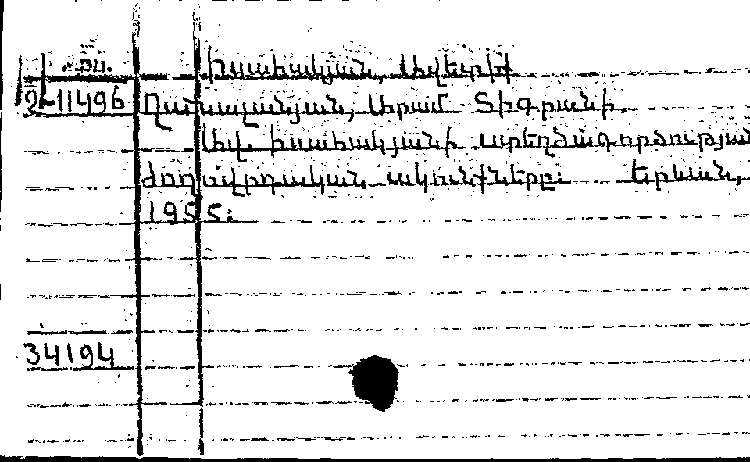 Իսահակյան, Ավետիք
2-11496 Ղանալանյան, Արամ Տիգրանի
Ավ. Իսահակյանի ստեղծագործության
ժողովրդական ակունքները: Երևան,
1955:
34194